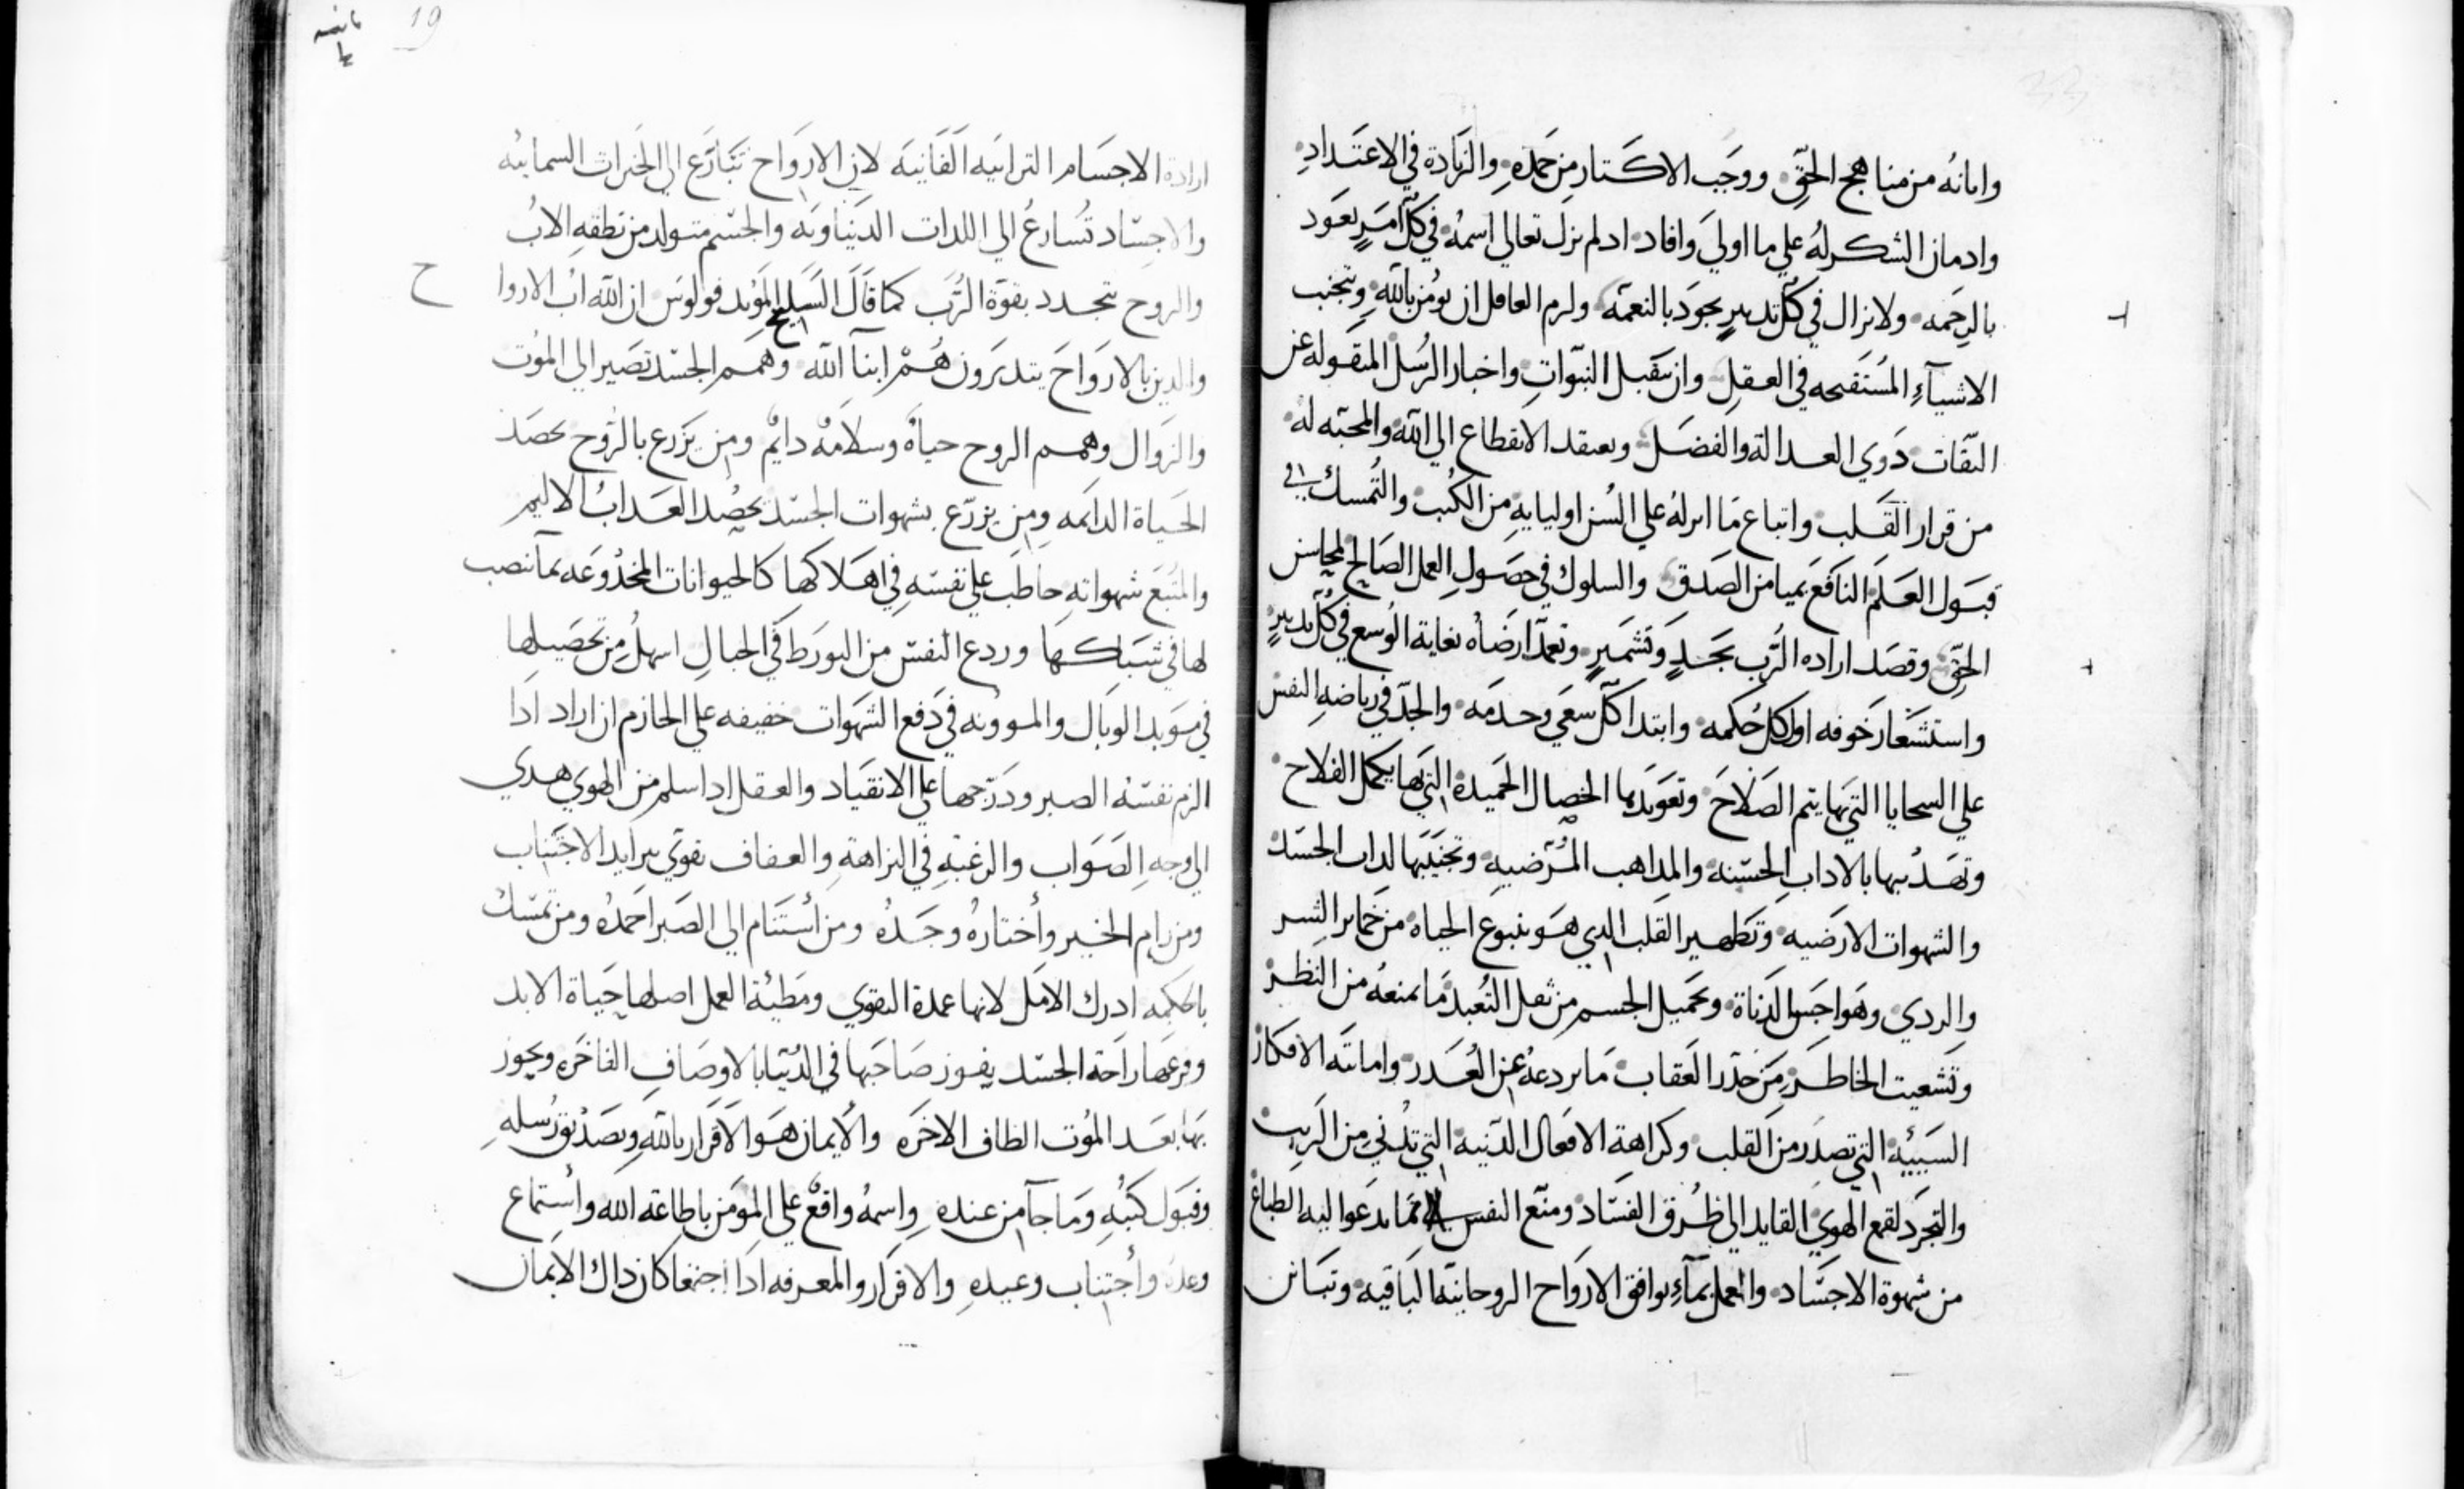 وامانه من مناهج الحق ووجب الاكتار من حمده والزيادة في الاعتداد
وادمان الشكر له علي ما اولي وافاد ادلم يزل تعالي اسمه في كل امر يعود
بالرحمه ولا يزال في كل تدبير يجود بالنعمه ولزم العاقل ان يومن بالله ويتجنب
الاشيآء المستقبحه في العقل وان يتقبل النبوات واخبار الرسل المنقوله عن
الثقات دوي العدالة والفضل ويعتقد الانقطاع الي الله والمحبه له
من قرار القلب واتباع ما انزله علي السن اوليايه من الكتب والتمسك في
قبول العلم النافع بميامن الصدق والسلوك في حصول العمل الصالح لمحاسن
الحق وقصد اراده الرب بجد وتشمير وتعمد ارضاه بغاية الوسع في كل تدبير
واستشعار خوفه اول كل حكمه وابتدا كل سعي وخدمه والجد في رياضه النفس
علي السجايا التي بها يتم الصلاح وتعويدها الخصال الحميدة التي بها يكمل الفلاح
وتهديبها بالاداب الحسنه والمداهب المرضيه وتجنيبها لدات الجسد
والشهوات الارضيه وتطهير القلب الدي هو ينبوع الحياه من خماير الشر
والردي وهواجس الدناة وتحميل الجسم من ثقل التعبد ما يمنعه من النظر
وتشعيت الخاطر من حدر العقاب ما يردعه عن الغدر واماتة الافكار
السيئية التي تصدر من القلب وكراهة الافعال الدنيه التي تدني من الريب
والتجرد لقمع الهوي القايد الي طرق الفساد ومنع النفس مما تدعوا اليه الطباع
من شهوة الاجساد والعمل بمآء يوافق الارواح الروحانية الباقيه وتباين
19
ارادة الاجسام الترابيه الفانيه لان الارواح تتسارع الي الخيرات السمائيه
والاجساد تسارع الي اللدات الدنياويه والجسم متولد من نطفه الاب
والروح تتجدد بقوة الرب كما قال السليح المويد فولوس ان الله اب الاروا
ح
والدين بالارواح يتدبرون هم ابنآ الله وهمم الجسد تصير الي الموت
والزوال وهمم الروح حياة وسلامه دايم ومن يزرع بالروح يحصد
الحياة الدايمه ومن يزرع بشهوات الجسد يحصد العداب الاليم
والمتبع شهواته حاطب علي نفسه في اهلاكها كالحيوانات المخدوعه بمآ نصب
لها في شباكها وردع النفس من التورط في الحبال اسهل من تحصيلها
في موبد الوبال والموونه في دفع الشهوات خفيفه علي الحازم ان اراد ادا
الزم نفسه الصبر ودرجها علي الانقياد والعقل ادا سلم من الهوي هدي
الي وجه الصواب والرغبه في النزاهة والعفاف تقوي بتزايد الاجتناب
ومن رام الخير وأختاره وجده ومن أستنام الي الصبر احمده ومن تمسك
بالحكمه ادرك الامل لانها عمدة التقوي ومطيئة العمل اصلها حياة الابد
وفرعها راحة الجسد يفوز صاحبها في الدنيا بالاوصاف الفاخره ويحوز
بها بعد الموت الطاف الاخره والأيمان هو الاقرار بالله وتصديق رسله
وقبول كتبه وما جآ من عنده واسمه واقع علي المومن باطاعة الله وأستماع
وعده وأجتناب وعيده والاقرار والمعرفه ادا اجتمعا كان داك الايمان